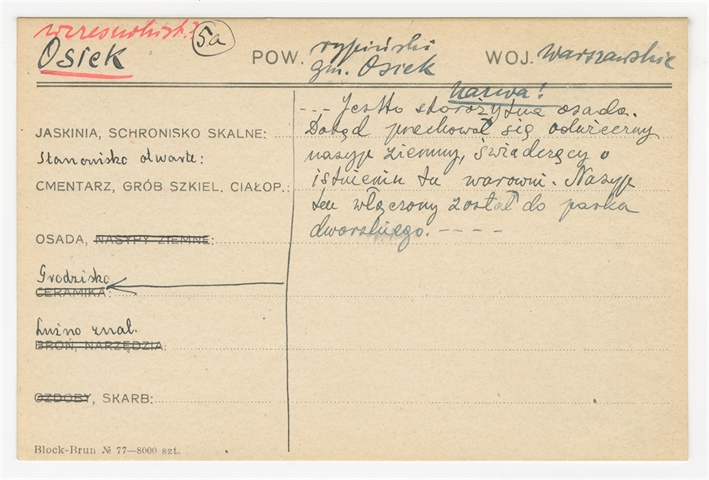 wczesnohist.?
Osiek
5a
POW. rypiński
gm. Osiek
WOJ. Warszawskie
nazwa!
--- Jest to starożytna osada.
Dotąd przechował się odwieczny
nasyp ziemny, świadczący o
istnieniu tu warowni. Nasyp
ten włączony został do parku
dworskiego. ----
JASKINIA, SCHRONISKO SKALNE:
Stanowisko otwarte:
CMENTARZ, GRÓB SZKIEL. CIAŁOP.:
OSADA, NASYPY ZIEMNE:
Grodzisko
CERAMIKA:
Luźno znal.
BROŃ, NARZĘDZIA:
OZDOBY, SKARB:
Block-Brun № 77—8000 szt.